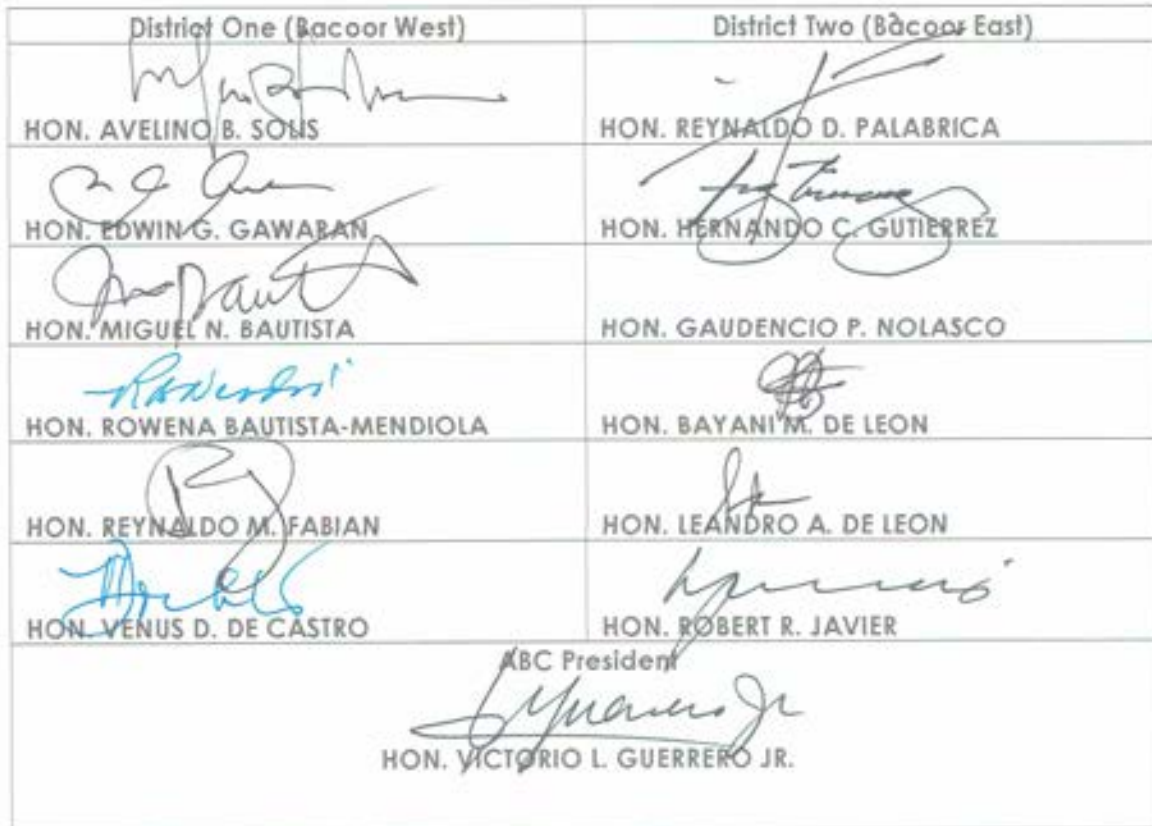 District One (Bacoor West)
District Two (Bacoor East)
HON. AVELINO B. SOLIS
HON. REYNALDO D. PALABRICA
HON. EDWIN G. GAWARAN
HON. HERNANDO C. GUTIERREZ
HON. MIGUEL N. BAUTISTA
HON. GAUDENCIO P. NOLASCO
HON. ROWENA BAUTISTA-MENDIOLA
HON. BAYANI M. DE LEON
HON. REYNALDO M. FABIAN
HON. LEANDRO A. DE LEON
HON. VENUS D. DE CASTRO
HON. ROBERT R. JAVIER
ABC President
HON. VICTORIO L. GUERRERO JR.